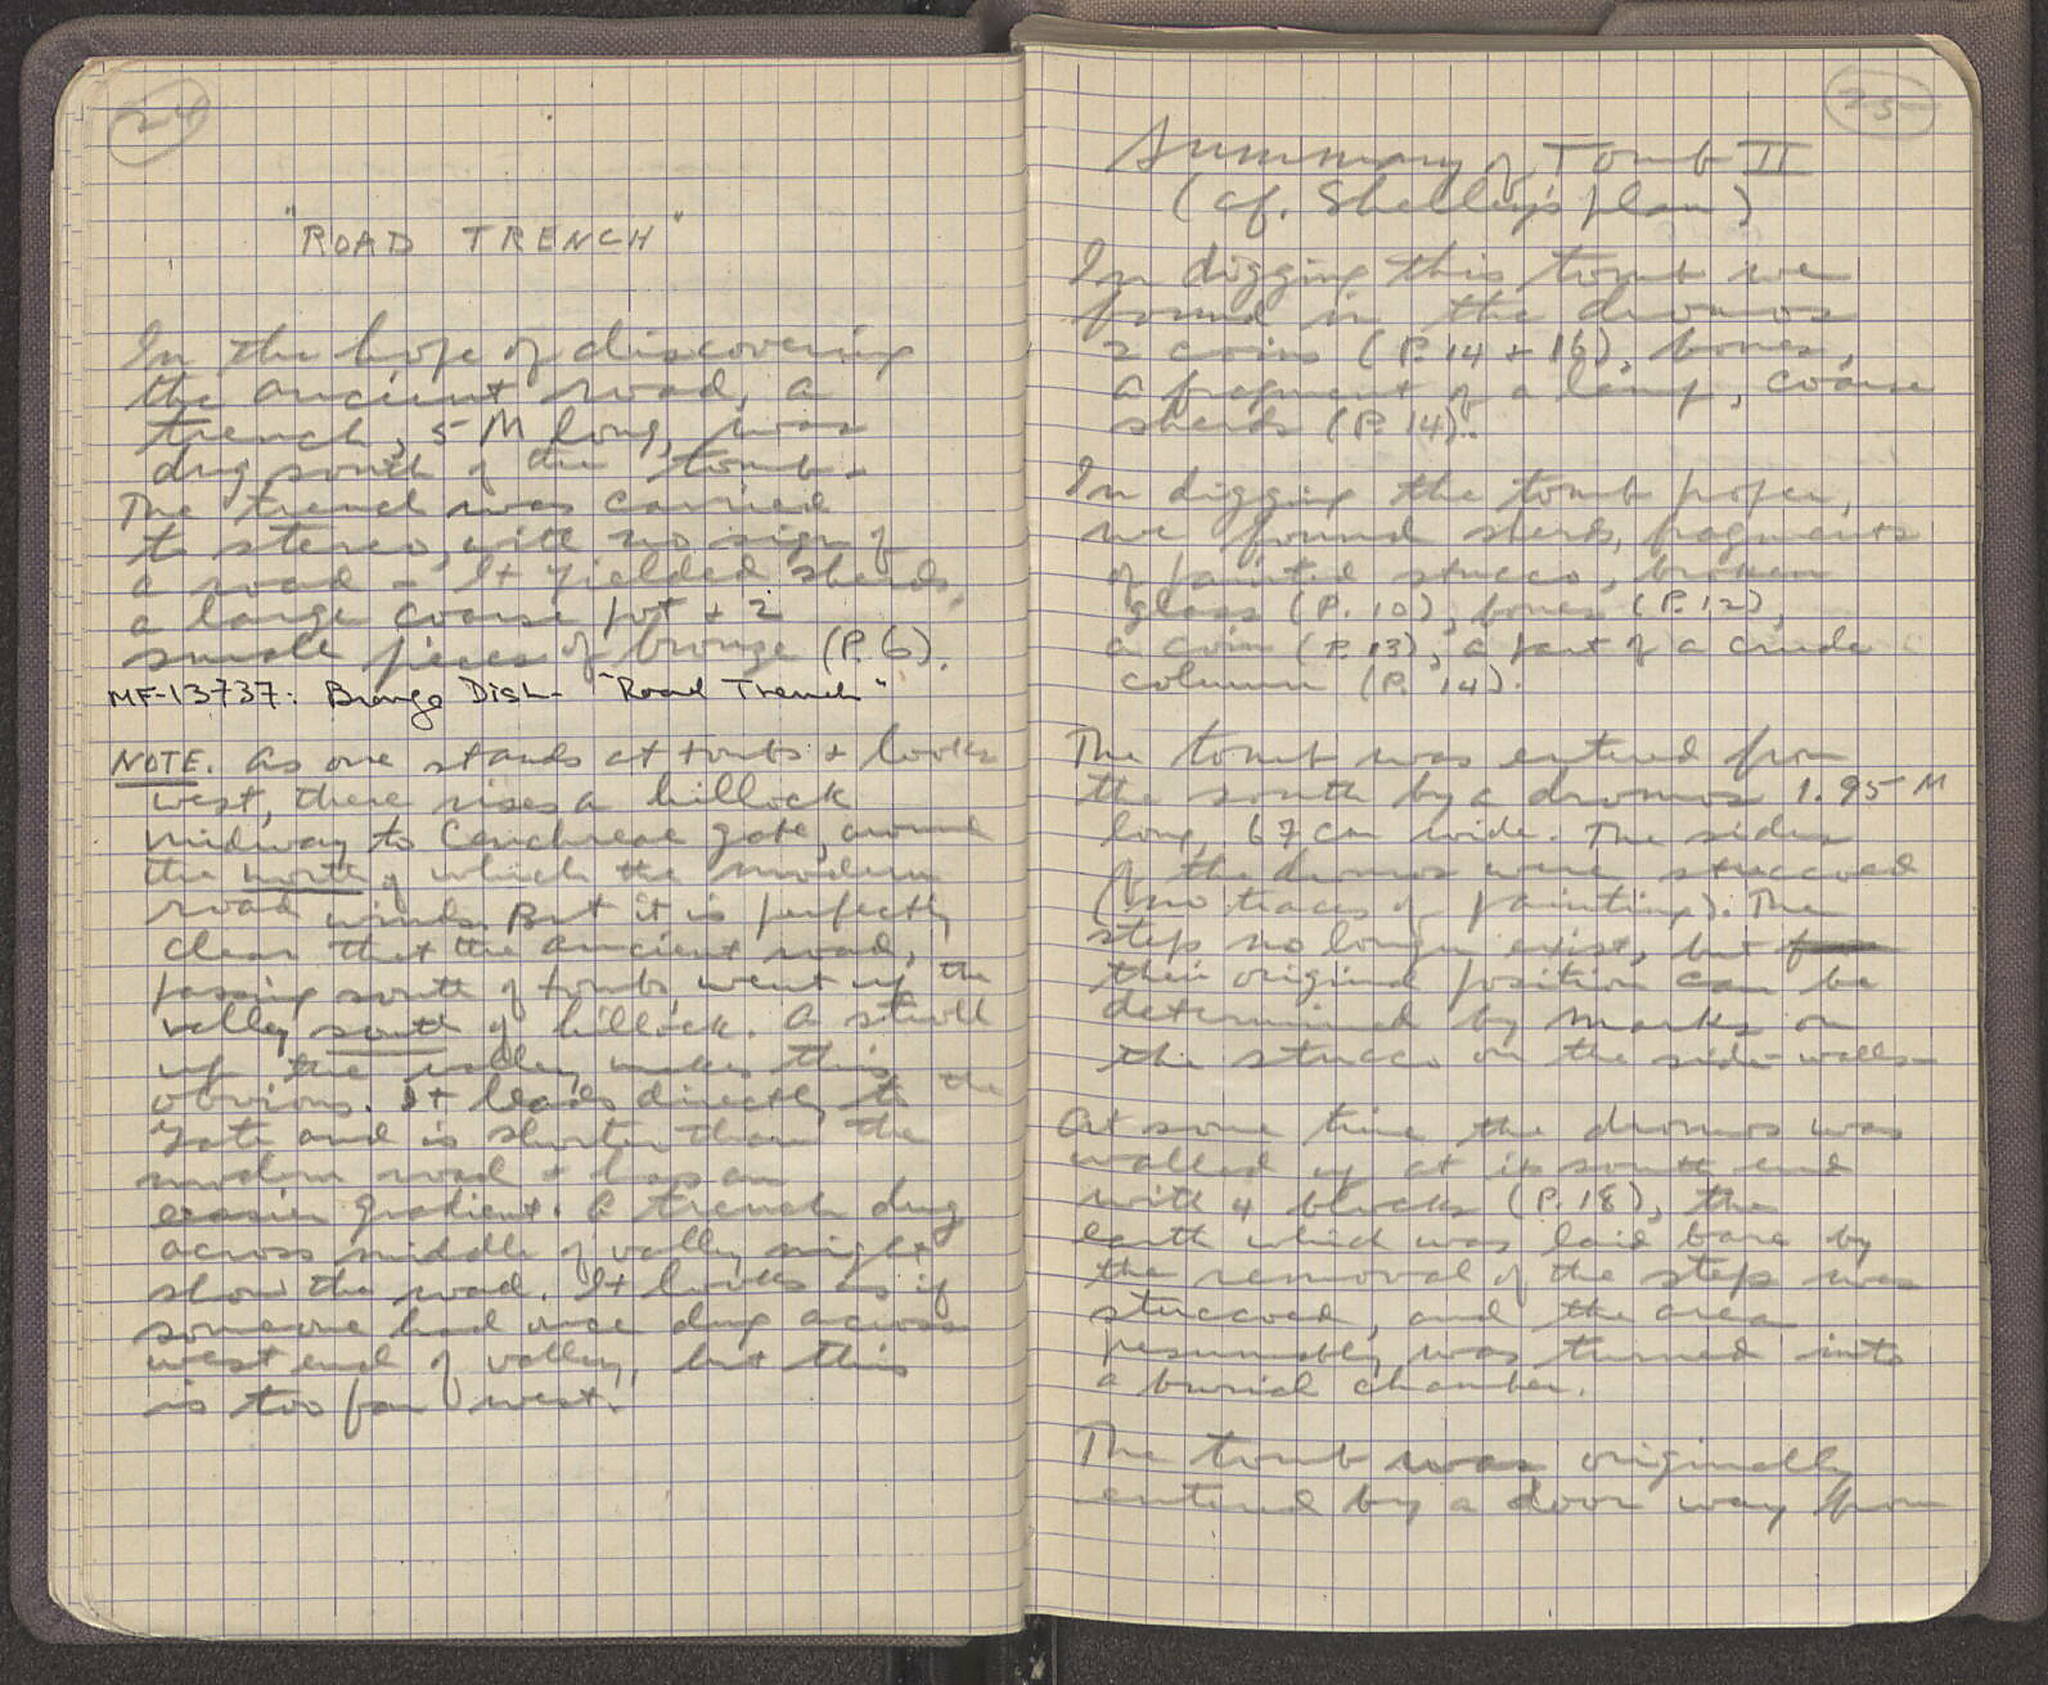 24
"ROAD TRENCH"
In the hope of discovering
the ancient road, a
trench, 5 M long, was
dug south of the tomb.
The trench was carried
to stereo, with no sign of
a road - It yielded sherds,
a large coarse pot + 2
small pieces of bronze (P. 6).
MF-13737: Bronze Dish - "Road Trench"
NOTE. As one stands at tombs + looks
west, there rises a hillock
midway to Cenchreae gate, around
the north of which the modern
road winds. But it is perfectly
clear that the ancient road,
passing south of tombs went up the
valley south of hillock. A stroll
up the valley makes this
obvious. It leads directly to the
gate and is shorter than the
modern road + has an
easier gradient. A trench dug
across middle of valley might
show the road. It looks as if
someone had once dug across
west end of valley, but this
is too far west.
25
Summary of Tomb II
(cf. Shelley's plan)
In digging this tomb we
found in the dromos
2 coins (P. 14 + 16), bones,
a fragment of a lamp, coarse
sherds (P. 14).
In digging the tomb proper,
we found sherds, fragments
of painted stucco, broken
glass (P. 10), bones (P. 12),
a coin (P. 13), a part of a crude
column (P. 14).
The tomb was entered from
the south by a dromos 1.95 M
long, 67 cm wide. The sides
of the dromos were stuccoed
(no traces of painting). The
steps no longer exist, but
their original position can be
determined by marks on
the stucco on the side-walls-
At some time the dromos was
walled up at its south end
with 4 blocks (P. 18), the
earth which was laid bare by
the removal of the steps was
stuccoed, and the area
presumably was turned into
a burial chamber.
The tomb was originally
entered by a door way from